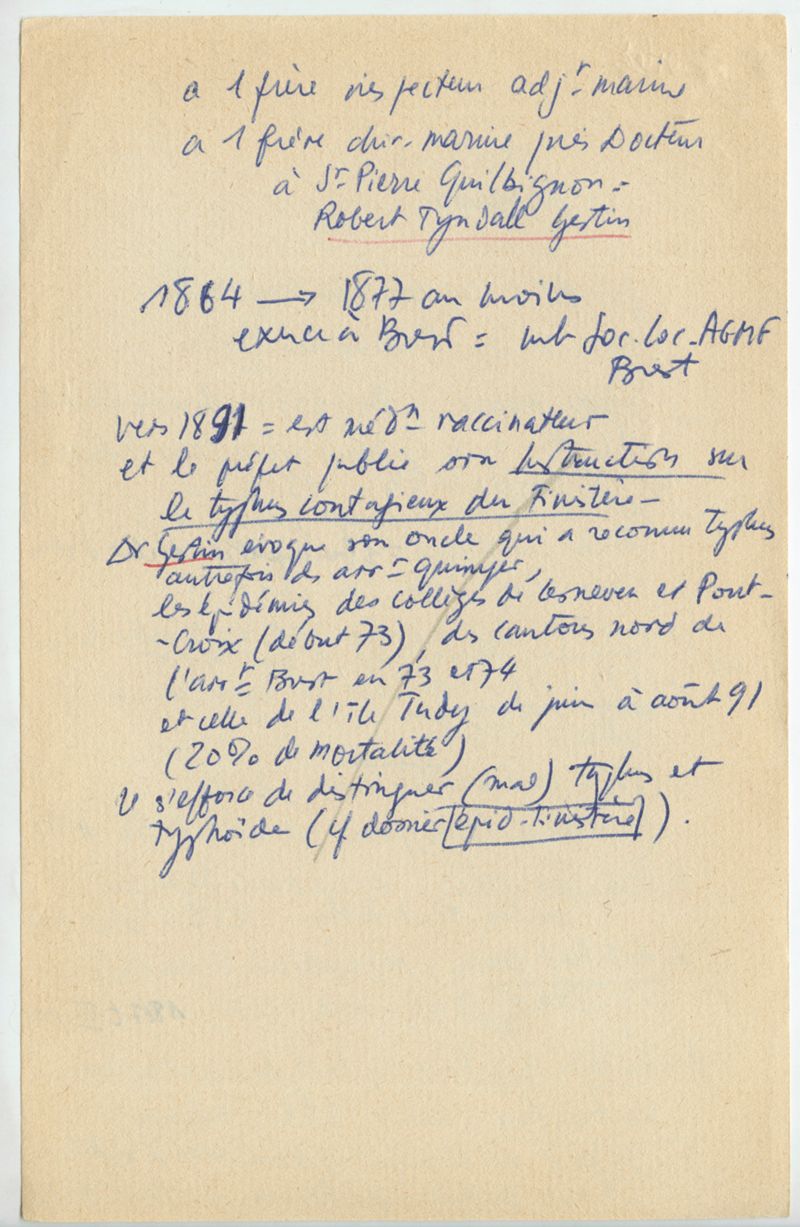 a 1 frère inspecteur adjt marine
a 1 frère chir. marine puis Docteur
à St Pierre Quilbignon -
Robert Tyndall Gestin
1864 → 1877 au moins
exerce à Brest = mb Soc. loc. AGMF
Brest
vers 1891 = est médn vaccinateur
et le préfet publie son Instruction sur
le typhus contagieux du Finistère -
Dr Gestin évoque son oncle qui a reconnu typhus
autrefois ds arrt Quimper,
les épidémies des collèges de Lesneven et Pont-
-Croix (début 73), des cantons nord de
l'arrt Brest en 73 et 74
et celle de l'île Tudy de juin à août 91
(20% de mortalité)
Il s'efforce de distinguer (mal) typhus et
typhoïde (cf dossier épid-Finistère).